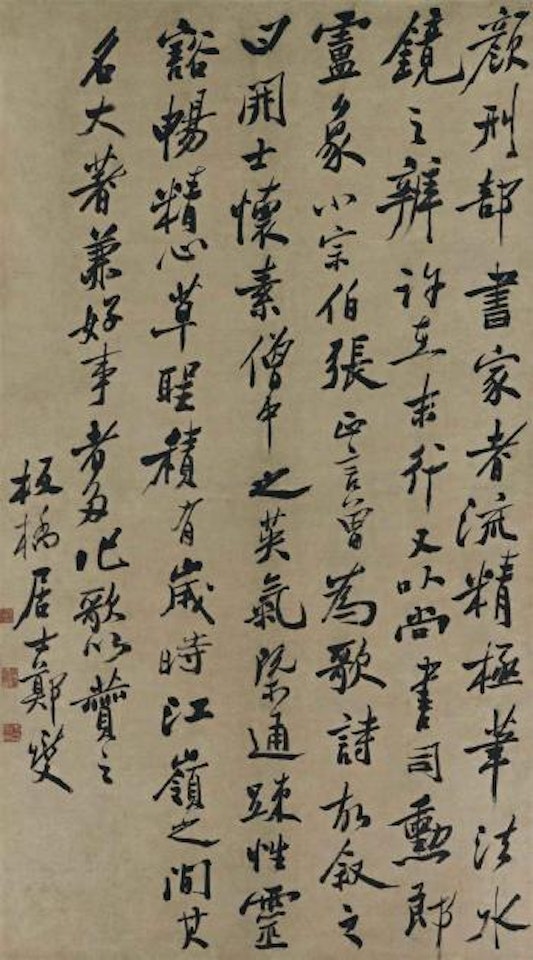 顏刑部書家者流精極筆法水
鏡之辨許在末行又以尚書司勳郎
盧象小宗伯張正言曾為歌詩故敘之
曰開士懷素僧中之英氣槩通踈性靈
豁暢精心草聖積有歲時江嶺之間其
名大著兼好事者多作歌以贊之
板橋居士鄭燮